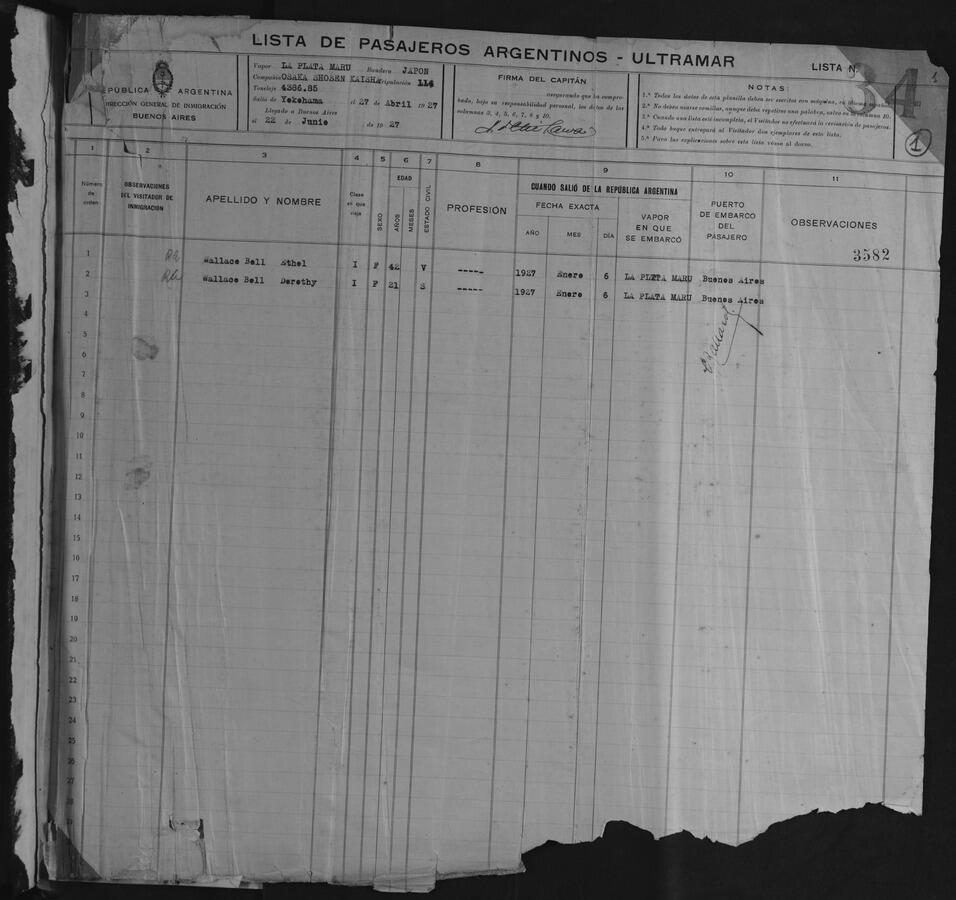 LISTA DE PASAJEROS ARGENTINOS - ULTRAMAR
LISTA N
34
1
1
PÚBLICA ARGENTINA
DIRECCIÓN GENERAL DE INMIGRACIÓN
BUENOS AIRES
Vapor LA PLATA MARU Bandera JAPON
Compañía OSAKA SHOSEN KAISHA Tripulación 114
Tonelaje 4386.85
Salió de Yokohama el 27 de Abril 1927
Llegado a Buenos Aires
el 22 de Junio de 1927
FIRMA DEL CAPITÁN
asegurando que ha compro-
bado, bajo su responsabilidad personal, los datos de las
columnas 3, 4, 5, 6, 7, 8 y 10.
NOTAS:
1.ª Todos los datos de esta planilla deben ser escritos con máquina, en idioma
2.ª No deben usarse comillas, aunque deba repetirse una palabra, salvo en columna 10.
3.ª Cuando una lista esté incompleta, el Visitador no efectuará la revisación de pasajeros.
4.ª Todo buque entregará al Visitador dos ejemplares de esta lista.
5.ª Para las explicaciones sobre esta lista véase al dorso.
1 2 3 4 5 6 7 8 9 10 11
Número de orden
OBSERVACIONES DEL VISITADOR DE INMIGRACIÓN
APELLIDO Y NOMBRE
Clase en que viaja
SEXO
EDAD
AÑOS
MESES
ESTADO CIVIL
PROFESIÓN
CUANDO SALIÓ DE LA REPÚBLICA ARGENTINA
FECHA EXACTA
AÑO MES DÍA
VAPOR EN QUE SE EMBARCÓ
PUERTO DE EMBARCO DEL PASAJERO
OBSERVACIONES
3582
1 Wallace Bell Ethel I F 42 V ----- 1927 Enero 6 LA PLATA MARU Buenos Aires
2 Wallace Bell Dorothy I F 21 S ----- 1927 Enero 6 LA PLATA MARU Buenos Aires
3
4
5
6
7
8
9
10
11
12
13
14
15
16
17
18
19
20
21
22
23
24
25
26
27
28